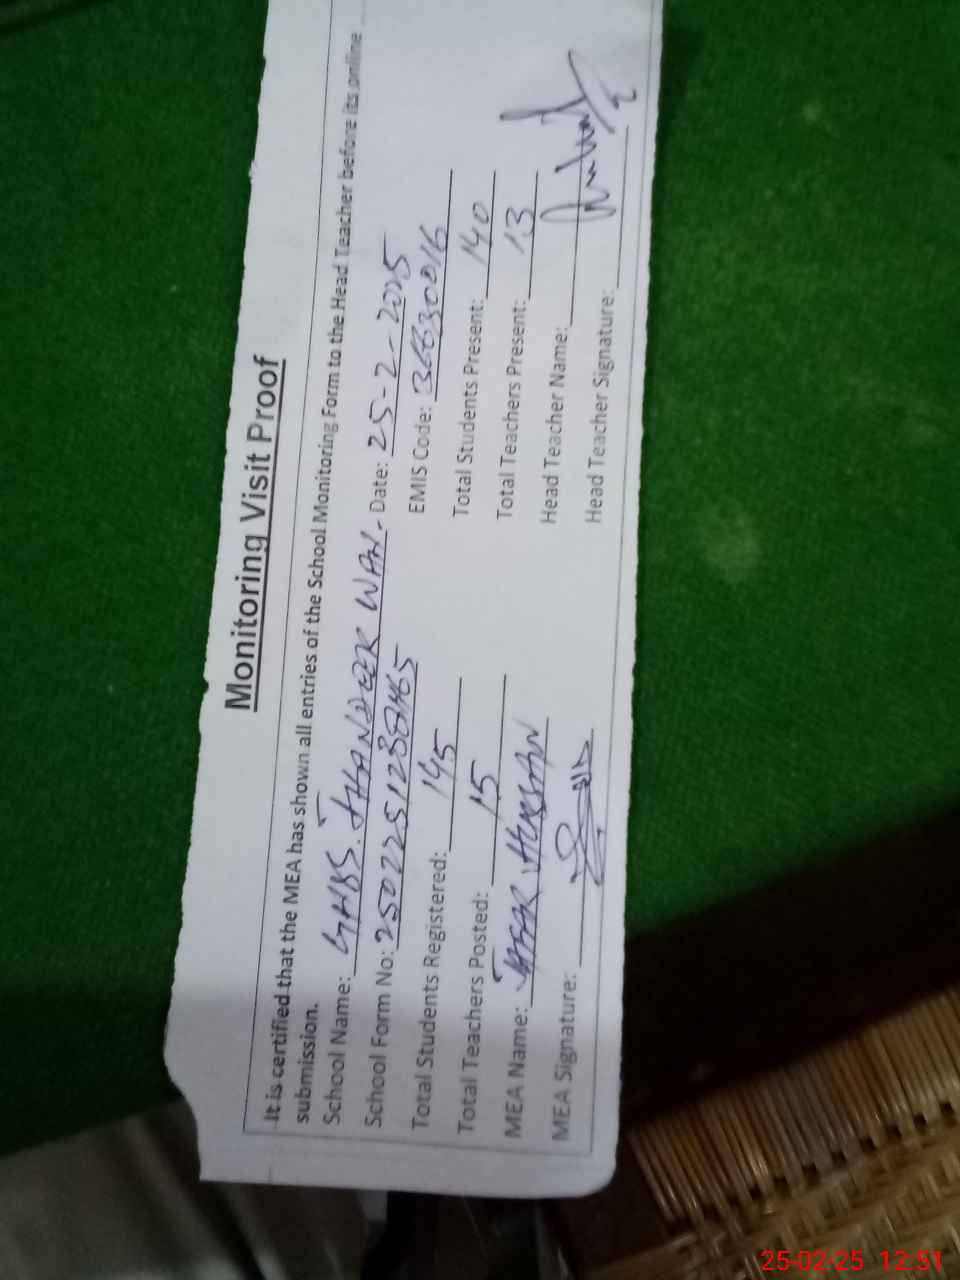 Monitoring Visit Proof
It is certified that the MEA has shown all entries of the School Monitoring Form to the Head Teacher before its online
submission.
School Name: GHSS. JHANDEER WAH- Date: 25-2-2025
School Form No: EMIS Code: 36630016
Total Students Registered: 145 Total Students Present: 140
Total Teachers Posted: 15 Total Teachers Present: 13
MEA Name: Head Teacher Name:
MEA Signature: Head Teacher Signature:
25-02-25 12:51